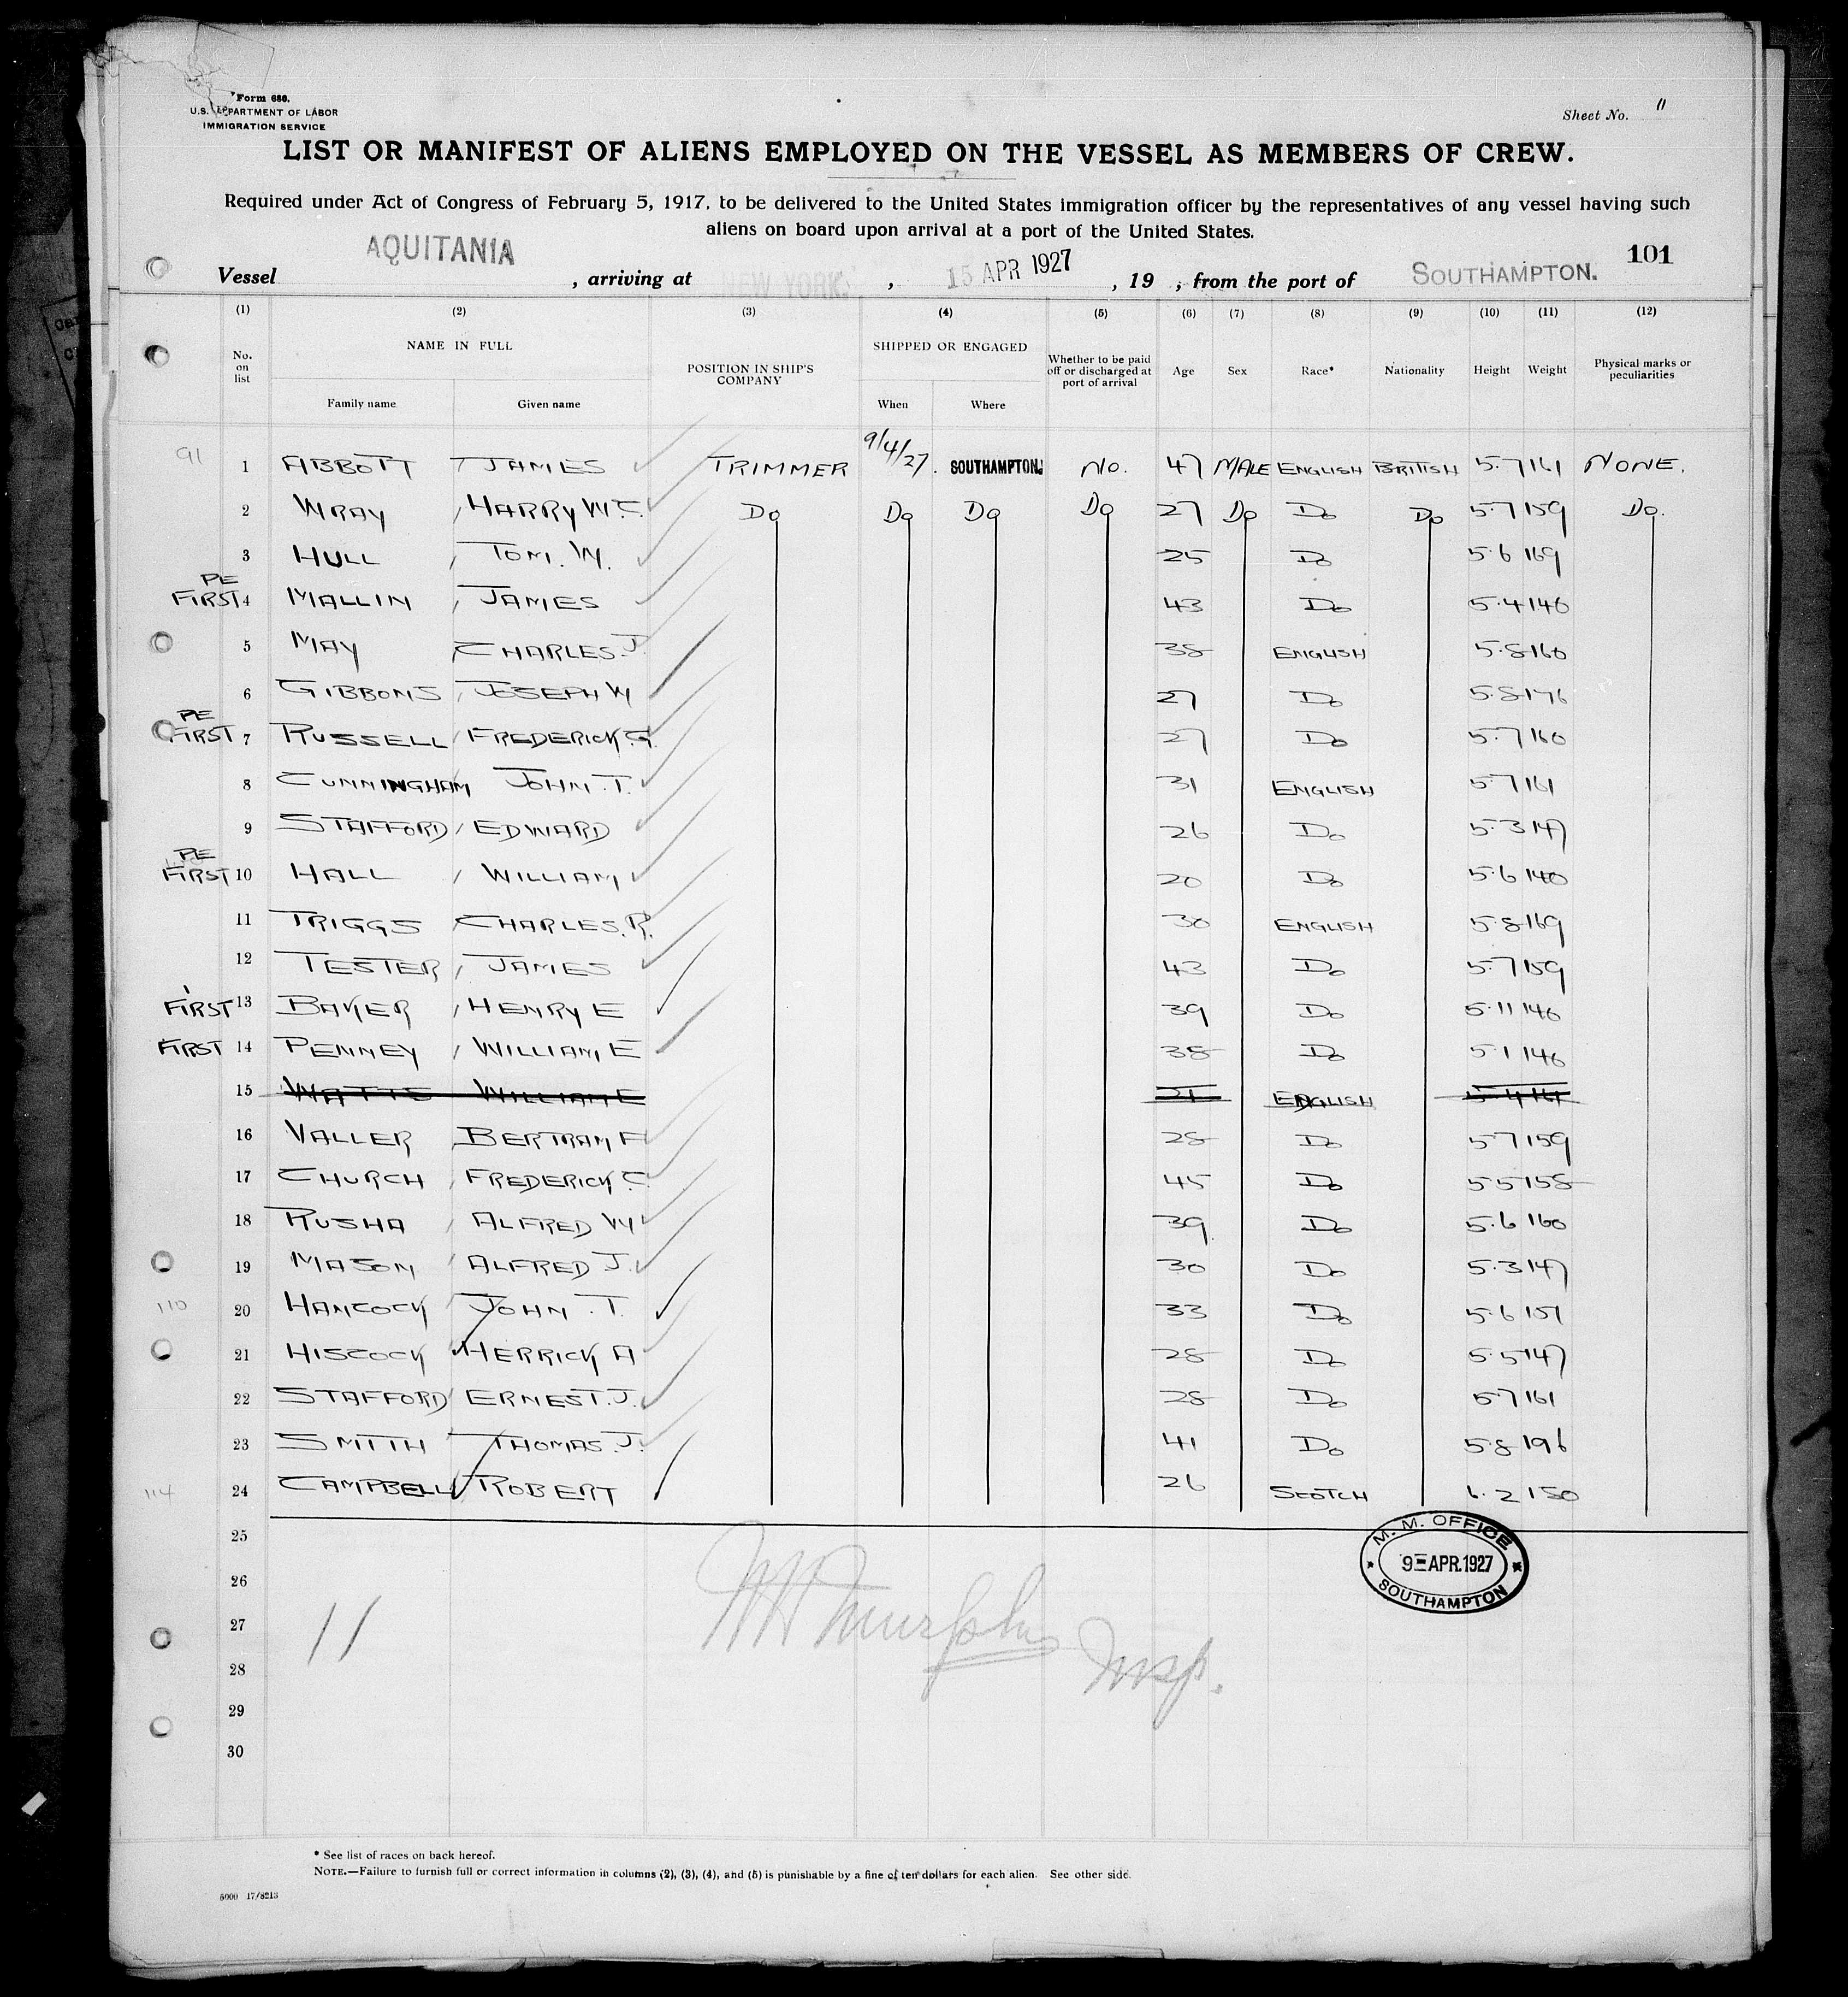 Form 680.
U.S. DEPARTMENT OF LABOR
IMMIGRATION SERVICE
Sheet No. 11
LIST OR MANIFEST OF ALIENS EMPLOYED ON THE VESSEL AS MEMBERS OF CREW.
Required under Act of Congress of February 5, 1917, to be delivered to the United States immigration officer by the representatives of any vessel having such
aliens on board upon arrival at a port of the United States.
101
Vessel AQUITANIA, arriving at NEW YORK., 15 APR 1927, 19 , from the port of SOUTHAMPTON.
(1) (2) (3) (4) (5) (6) (7) (8) (9) (10) (11) (12)
No. on list NAME IN FULL POSITION IN SHIP'S COMPANY SHIPPED OR ENGAGED Whether to be paid off or discharged at port of arrival Age Sex Race* Nationality Height Weight Physical marks or peculiarities
Family name Given name When Where
91 1 ABBOTT , JAMES TRIMMER 9/4/27. SOUTHAMPTON. NO. 47 MALE ENGLISH BRITISH 5.7 161 NONE.
2 WRAY , HARRY W.C. Do Do Do Do 27 Do Do Do 5.7 159 Do.
3 HULL , TOM. W. 25 Do 5.6 169
PE FIRST 4 MALLIN , JAMES 43 Do 5.4 146
5 MAY , CHARLES J. 38 ENGLISH 5.8 160
6 GIBBONS , JOSEPH W 27 Do 5.8 176
PE FIRST 7 RUSSELL , FREDERICK G. 27 Do 5.7 160
8 CUNNINGHAM JOHN T. 31 ENGLISH 5.7 161
9 STAFFORD , EDWARD 26 Do 5.3 147
PE FIRST 10 HALL , WILLIAM 20 Do 5.6 140
11 TRIGGS CHARLES. R. 30 ENGLISH 5.8 169
12 TESTER , JAMES 43 Do 5.7 159
FIRST 13 BAKER , HENRY E 39 Do 5.11 146
FIRST 14 PENNEY , WILLIAM E 38 Do 5.1 146
15 WATTS WILLIAM E 21 ENGLISH
16 VALLER , BERTRAM F 28 Do 5.7 159
17 CHURCH , FREDERICK C. 45 Do 5.5 158
18 RUSHA , ALFRED W 39 Do 5.6 160
19 MASON , ALFRED J. 30 Do 5.3 147
110 20 HANCOCK JOHN . T. 33 Do 5.6 151
21 HISCOCK HERRICK A 28 Do 5.5 147
22 STAFFORD ERNEST. J. 28 Do 5.7 161
23 SMITH THOMAS. J. 41 Do 5.8 196
114 24 CAMPBELL ROBERT 26 SCOTCH 6.2 150
25
26
27
28
29
30
M. M. OFFICE
9 - APR. 1927
SOUTHAMPTON
11
Murphy
Insp.
* See list of races on back hereof.
NOTE.—Failure to furnish full or correct information in columns (2), (3), (4), and (5) is punishable by a fine of ten dollars for each alien. See other side.
5000 17/8213